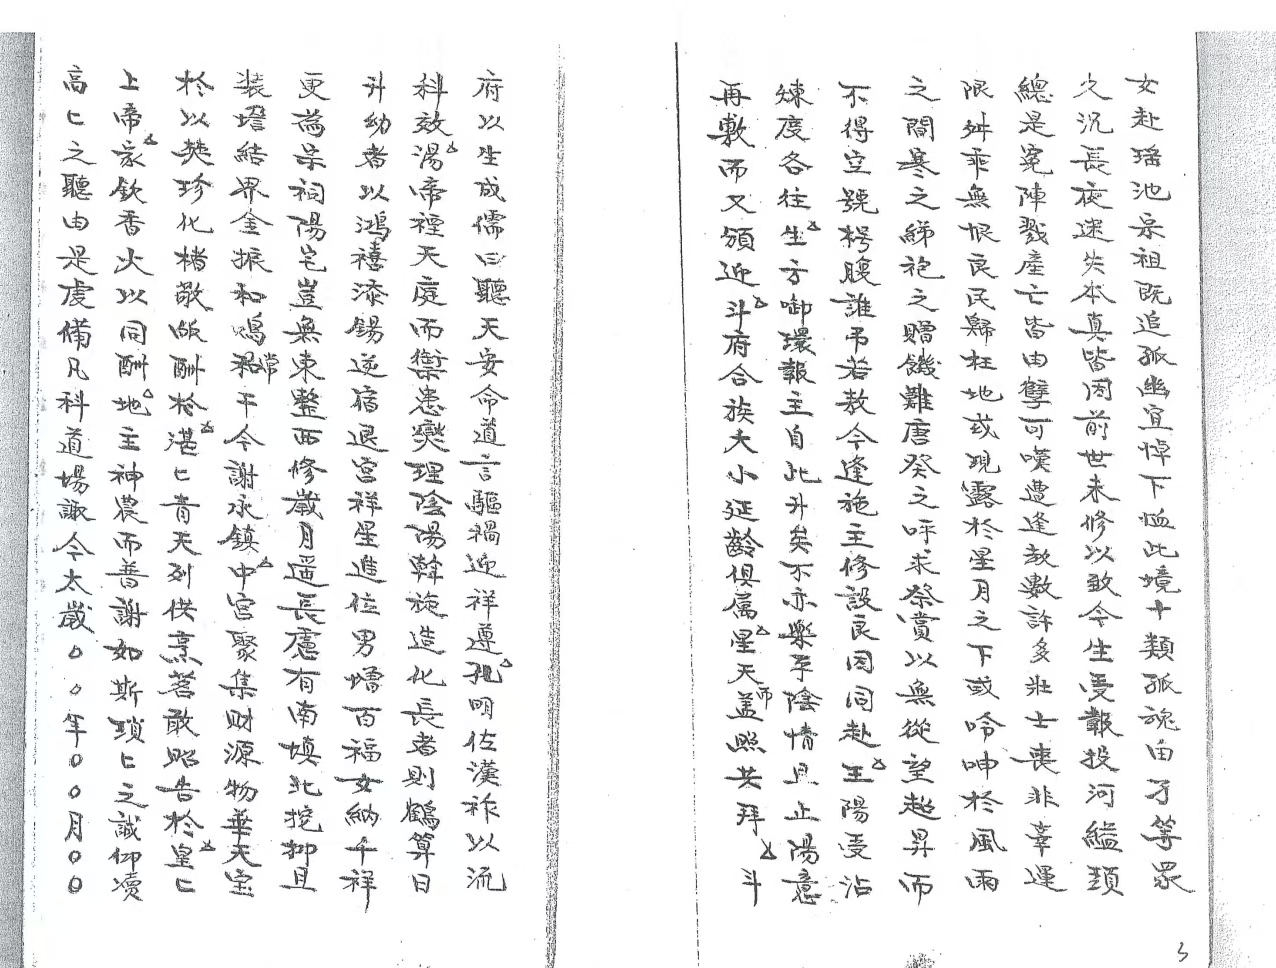 女赴瑶池宗祖既追孤幽宜悼下恤此境十類孤魂由子等眾
久沉長夜迷失本真皆因前世未修以致今生受報投河縊頸
總是冤陣戮產亡皆由孽可嘆遭逢教數許多壯士喪非辜運
限舛乖無恨良民歸枉地或現露於星月之下或呤呻於風雨
之間寒之綈袍之贈饑難庚癸之呼求祭賞以無從望超昇而
不得空號枵腹誰弔若敖今逢施主修設良因同赴王陽受沾
煉度各往生方啣環報主自此升矣不亦樂乎陰情且止陽意
再敷而又頒近斗府合族大小延齡俱属星天蓋照共拜斗
府以生成儒曰聽天安命道言驅禍迎祥遵孔明佐漢祚以流
科效湯帝禋天庭而禦患燮理陰陽斡施造化長者則鶴算日
升幼者以鴻禧添錫逆宿退宮祥星進位男增百福女納千祥
更為宗祠陽宅豈無東整西修歲月遥長慮有南填北挖抑且
装壇結界金振和鳴若常干今謝永鎮中宮聚集財源物華天宝
於以焚珍化楮敬皈酬於湛匕青天列供烹茗敢昭告於皇匕
上帝家欽香火以同酬地主神農而普謝如斯瑣匕之誠仰瀆
高匕之聽由是虔備凡科道場諏今太歲〇〇年〇〇月〇〇
3